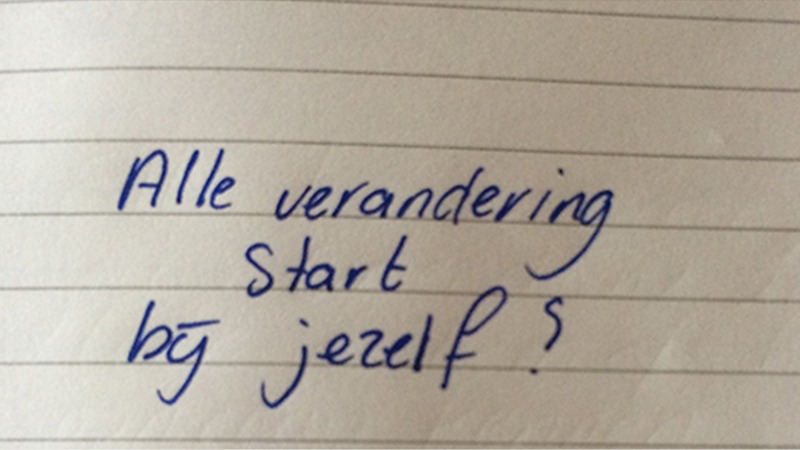 Alle verandering
Start
bij jezelf?